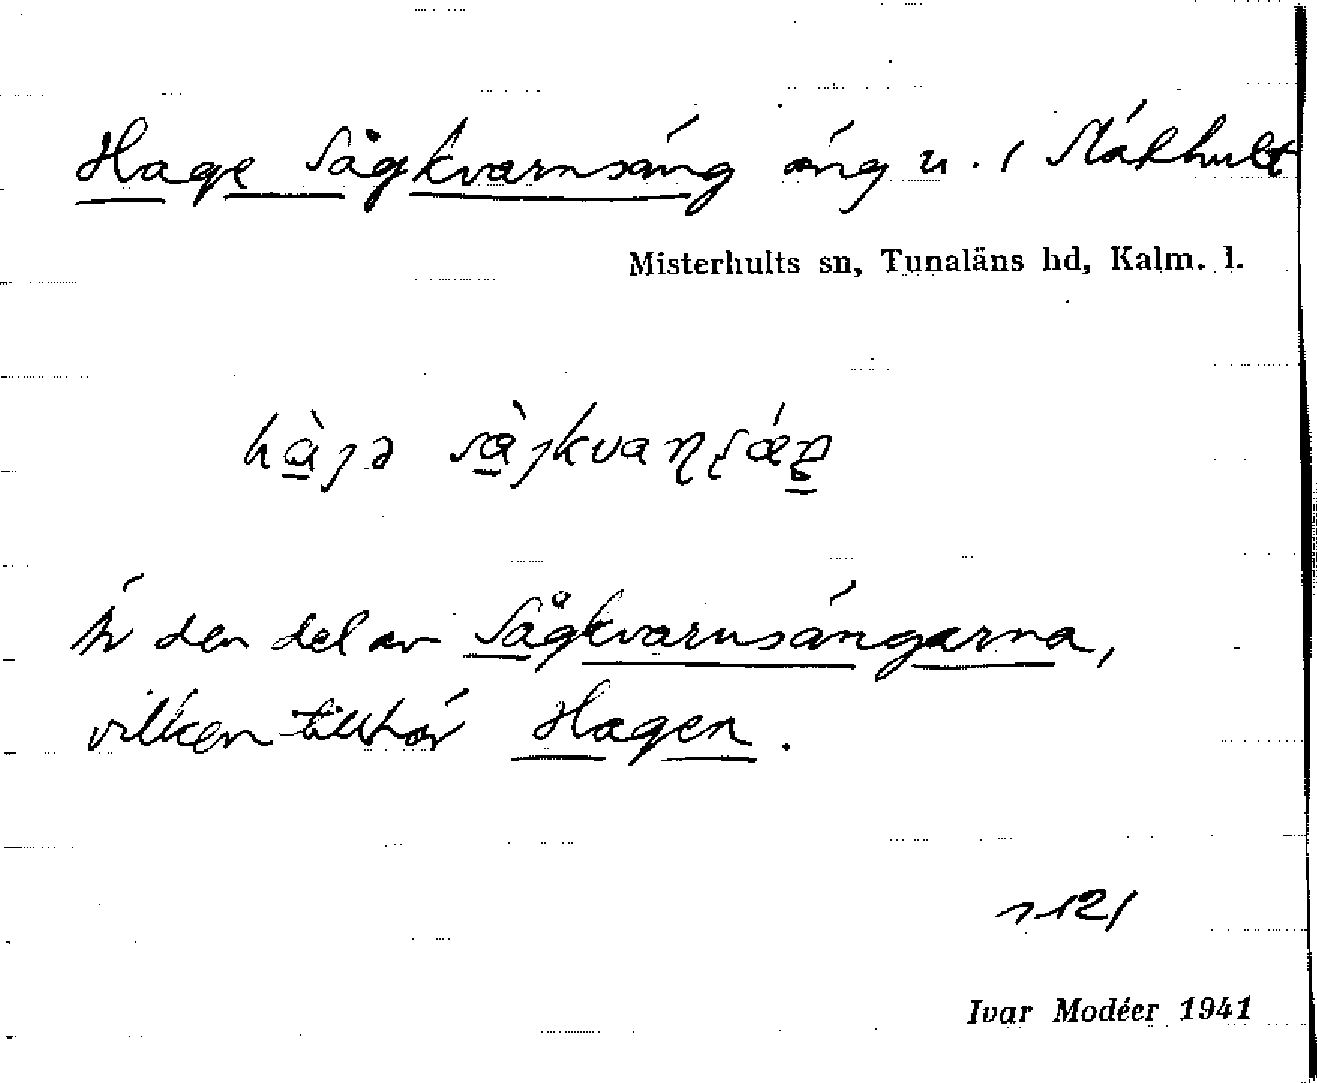 Hage Sågkvarnsäng äng u. i Släthult
Misterhults sn, Tunaläns hd, Kalm. l.
hàɟə sàɟkvaɳʂǽŋ
Är den del av Sågkvarnsängarna,
vilken tillhör Hagen.
Ivar Modéer 1941